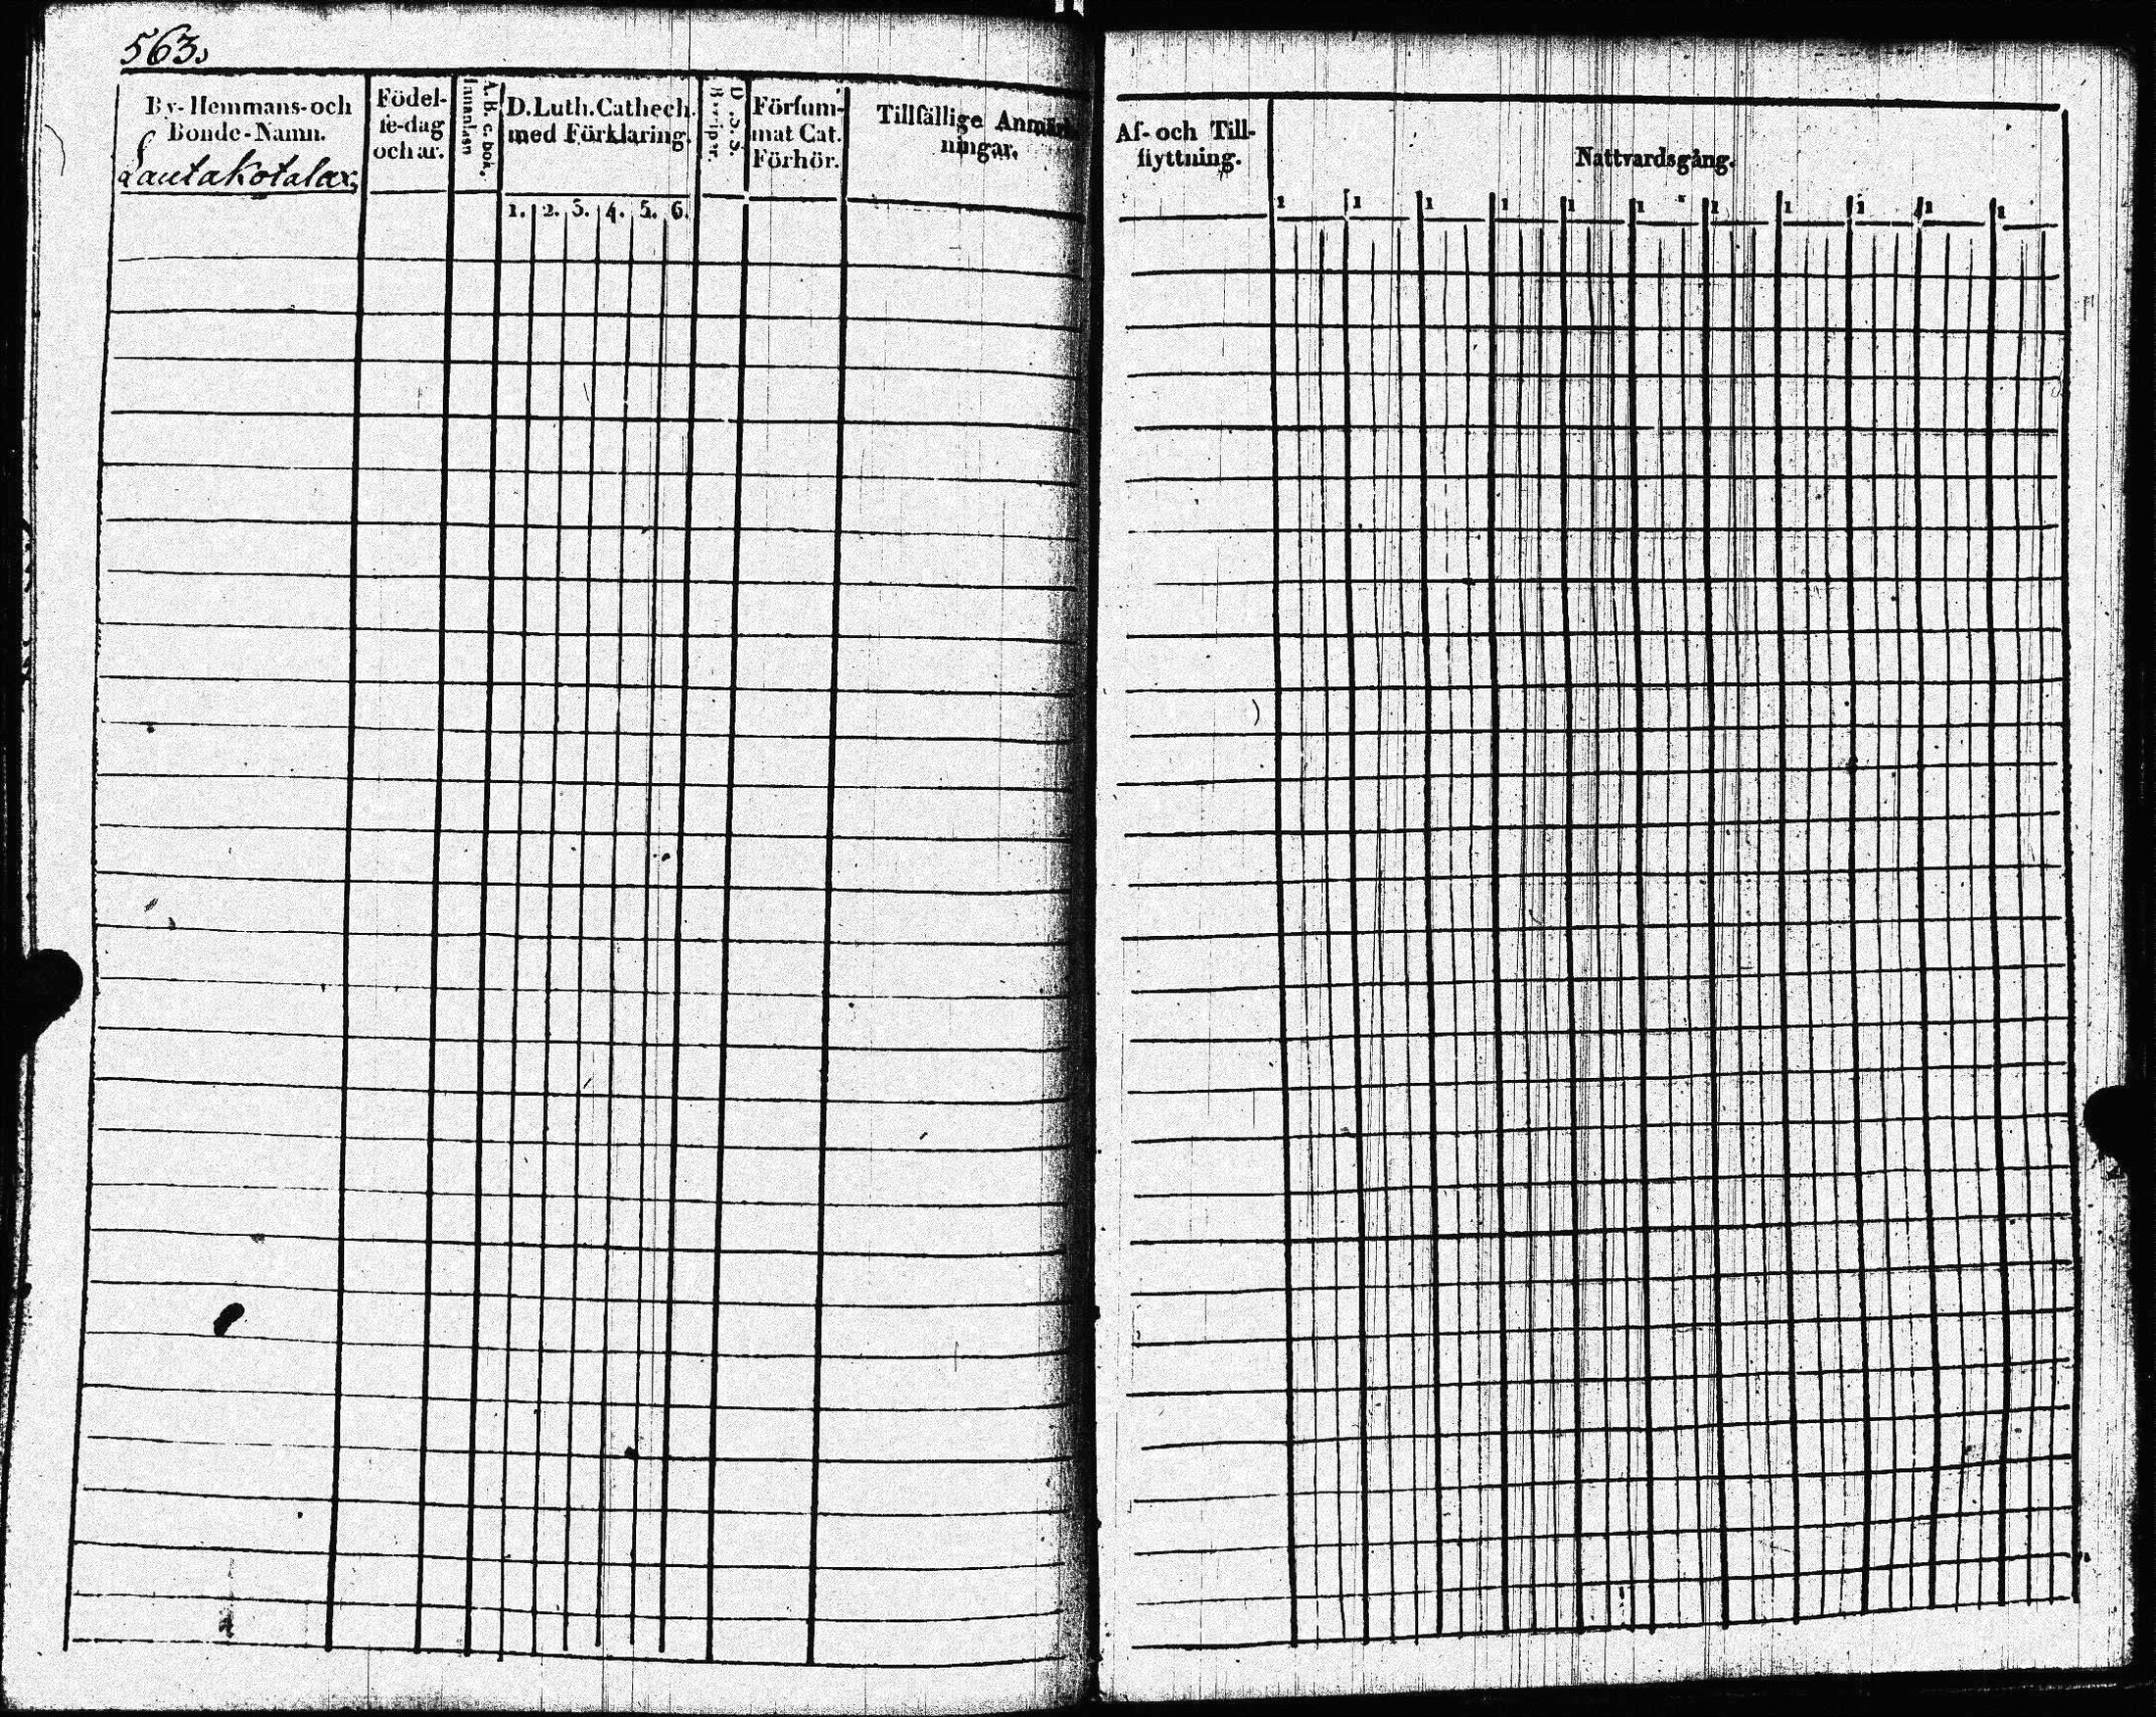 563.
By-Hemmans-och
Bonde-Namn.
Lautakotalax,
Födel-
se-dag
och år.
A. B. c. bok.
Innanläsn
D. Luth. Cathech.
med Förklaring.
1. 2. 3. 4. 5. 6.
D. S. S.
Försum-
mat Cat.
Förhör.
Tillfällige Anmärk
ningar.
Af- och Till-
flyttning.
Nattvardsgång.
1 1 1 1 1 1 1 1 1 1 1